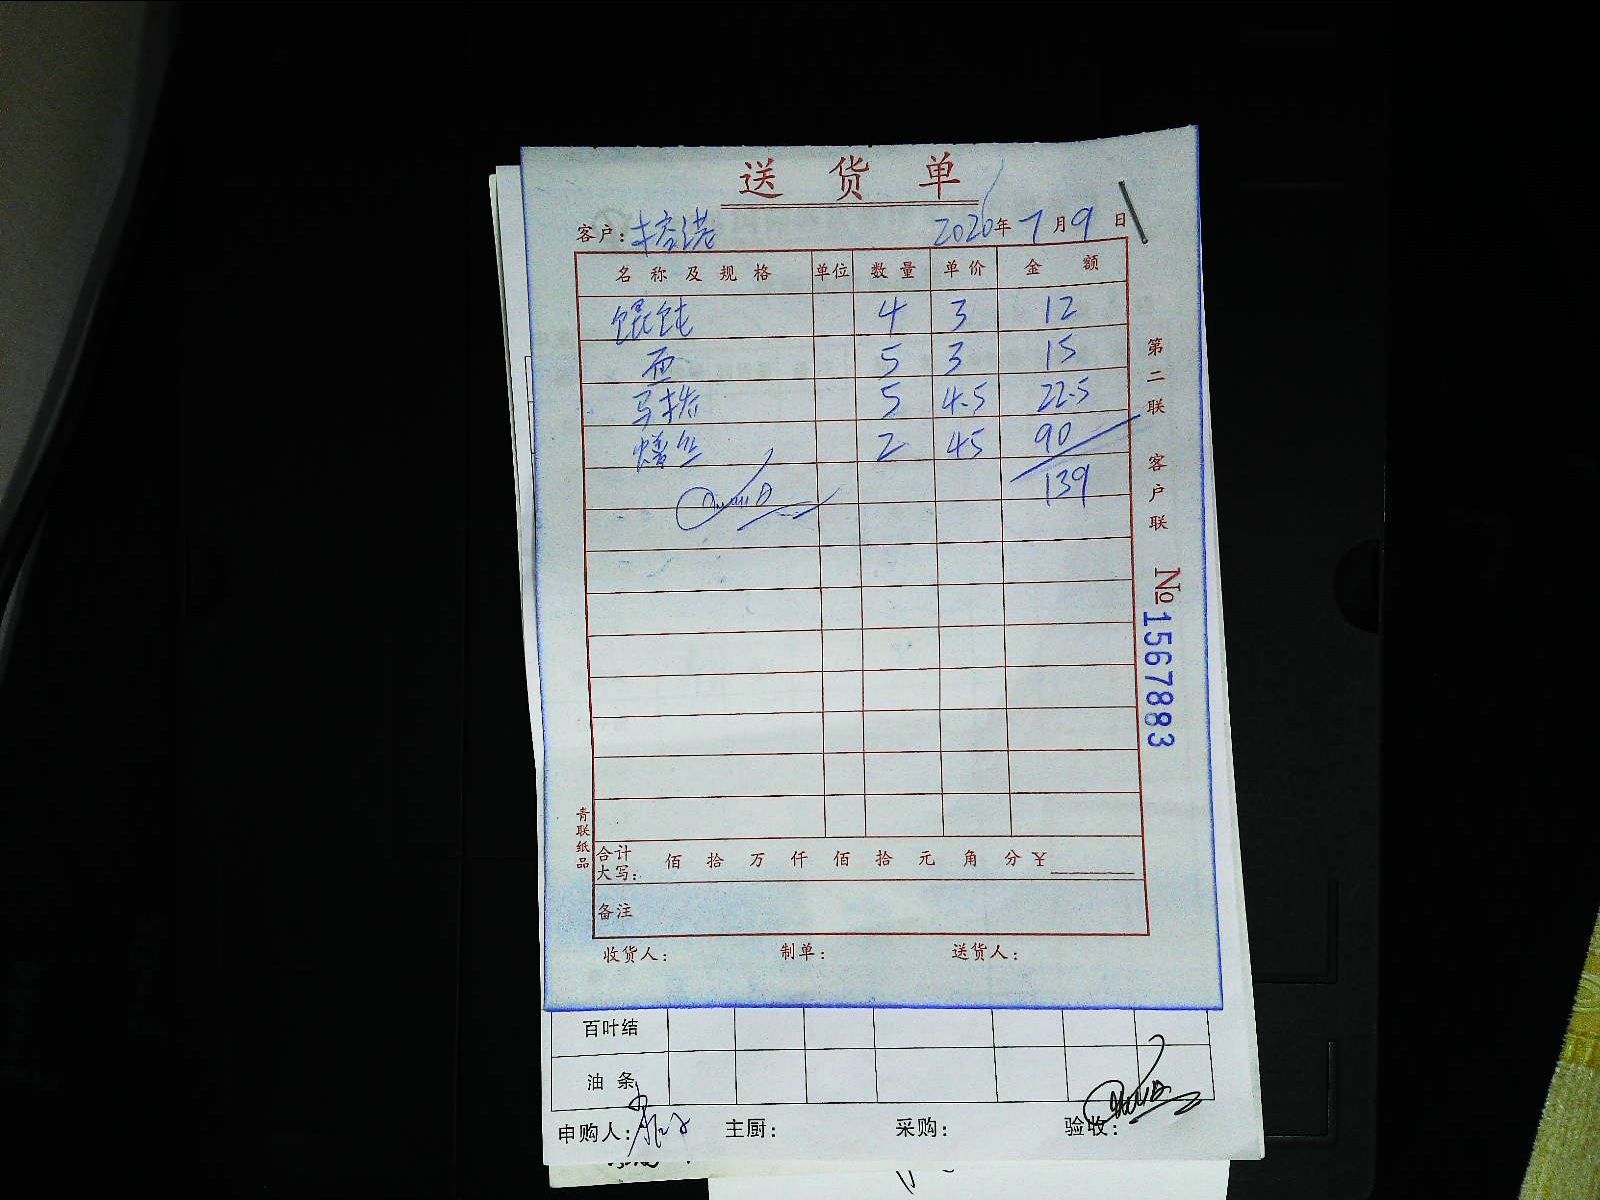 送货单
客户: 榕港 2020年7月9日
名称及规格 单位 数量 单价 金额
馄饨 4 3 12
面 5 3 15
马桥 5 4.5 22.5
2 45 90
139
合计大写: 佰 拾 万 仟 佰 拾 元 角 分 ¥
备注
收货人: 制单: 送货人:
第二联 客户联
№1567883
青联纸品
百叶结
油条
申购人: 主厨: 采购: 验收: